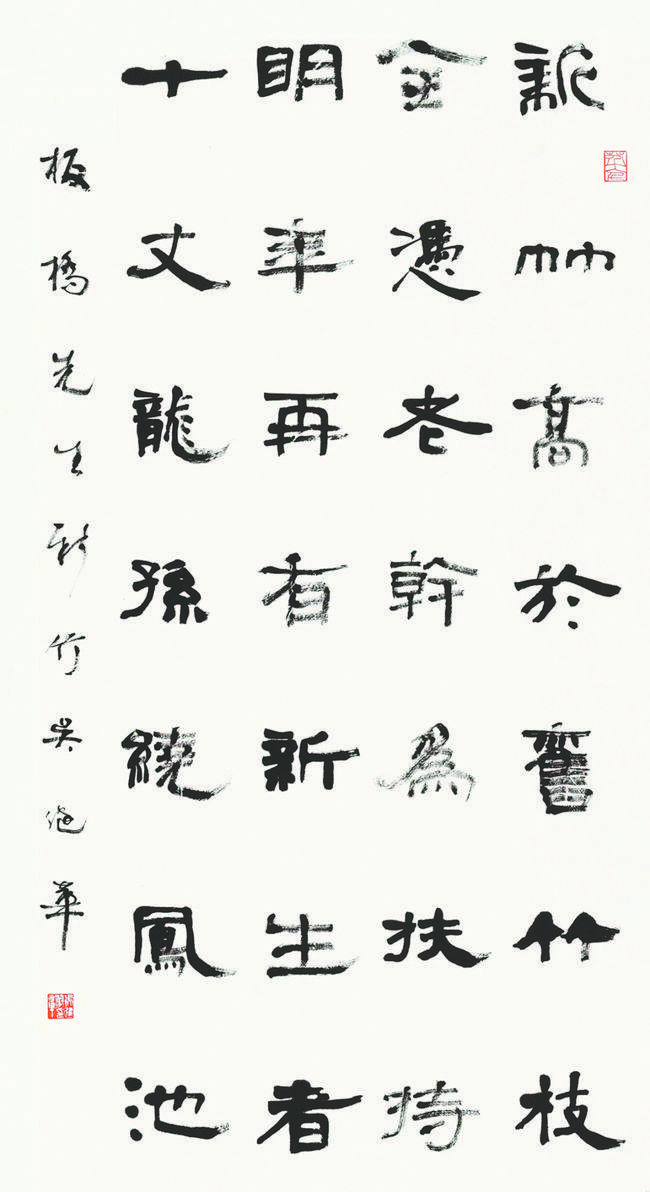 新竹高於舊竹枝
全憑老幹為扶持
明年再有新生者
十丈龍孫繞鳳池
板橋先生新竹吴華